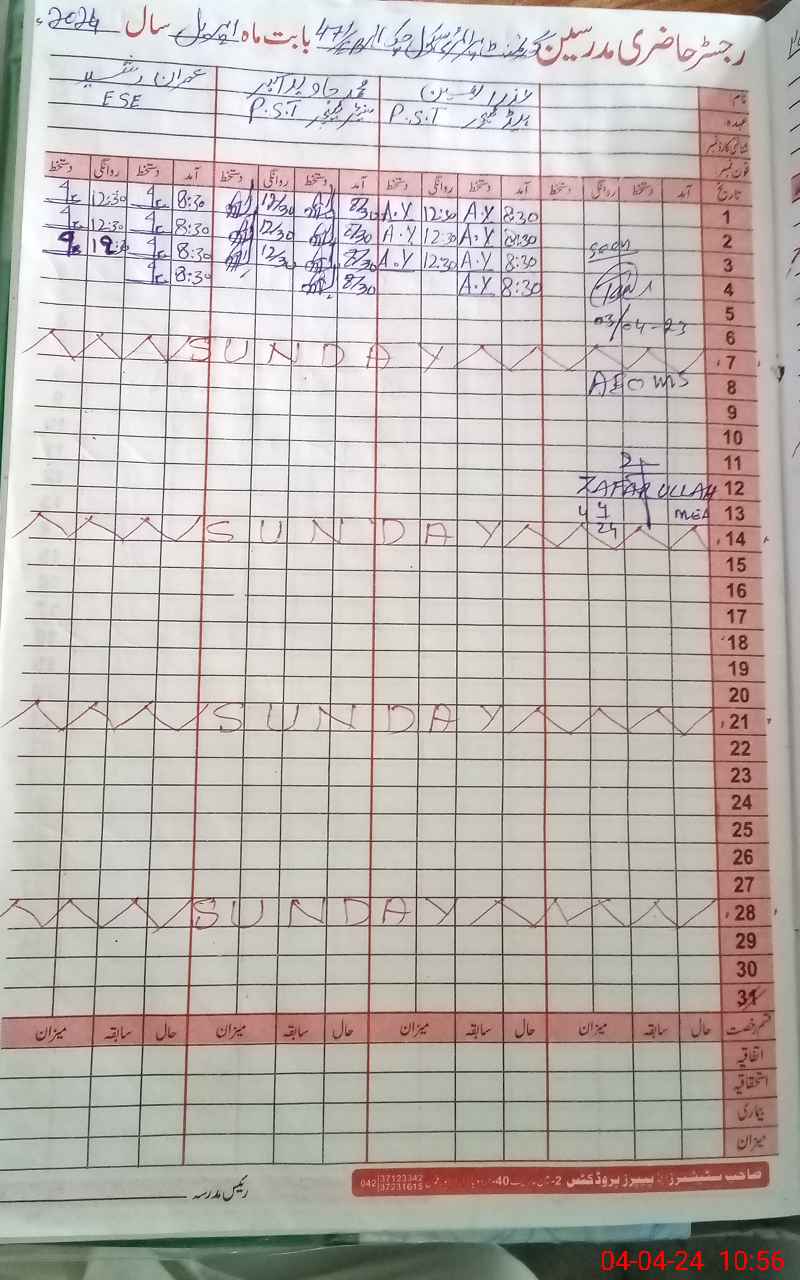 رجسٹر حاضری مدرسین گورنمنٹ پرائمری سکول چک 47/ بابت ماہ اپریل سال 2024
نام محمد جاوید عمران رشید
عہدہ P.S.T P.S.T ESE
شناختی کارڈ نمبر
فون نمبر
تاریخ آمد دستخط روانگی دستخط آمد دستخط روانگی دستخط آمد دستخط روانگی دستخط آمد دستخط روانگی دستخط
1 8:30 A.Y 12:30 A.Y 8/30 12/30 8:30 12:30
2 8:30 A.Y 12:30 A.Y 8/30 12/30 8:30 12:30
3 seen 8:30 A.Y 12:30 A.Y 8/30 12/30 8:30 12:30
4 8:30 A.Y 8/30 8:30
5 03/04-23
6
7 SUNDAY
8 AEO
9
10
11
12 ZAFAR ULLAH
13 MEA
14 SUNDAY
15
16
17
18
19
20
21 SUNDAY
22
23
24
25
26
27
28 SUNDAY
29
30
31
قسم رخصت حال سابقہ میزان حال سابقہ میزان حال سابقہ میزان حال سابقہ میزان
اتفاقیہ
استحقاقیہ
بیماری
میزان
صاحب سٹیشنرز پیپرز پروڈکٹس 042 37123342 37231615
رئیس مدرسہ
04-04-24 10:56